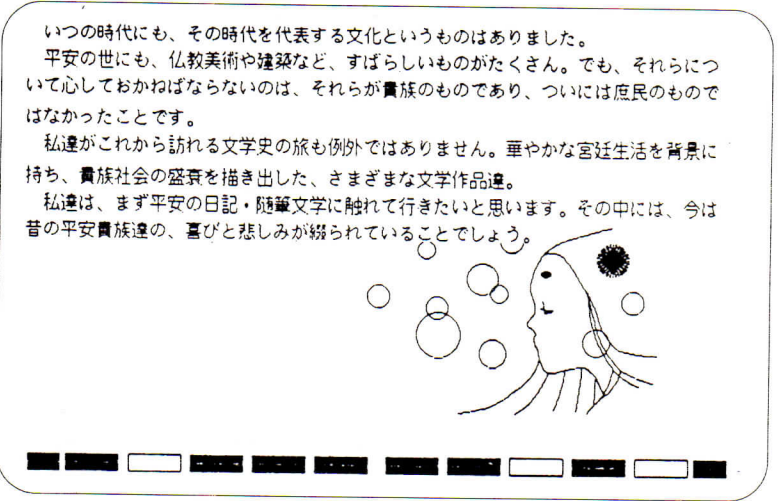 いつの時代にも、その時代を代表する文化というものはありました。
平安の世にも、仏教美術や建築など、すばらしいものがたくさん。でも、それらにつ
いて心しておかねばならないのは、それらが貴族のものであり、ついには庶民のもので
はなかったことです。
私達がこれから訪れる文学史の旅も例外ではありません。華やかな宮廷生活を背景に
持ち、貴族社会の盛衰を描き出した、さまざまな文学作品達。
私達は、まず平安の日記・随筆文学に触れて行きたいと思います。その中には、今は
昔の平安貴族達の、喜びと悲しみが綴られていることでしょう。